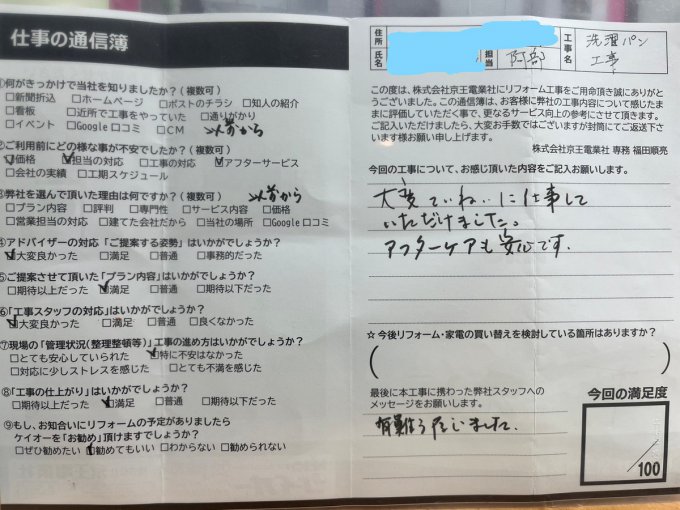 仕事の通信簿
①何がきっかけで当社を知りましたか？(複数可)
□新聞折込 □ホームページ □ポストのチラシ □知人の紹介
□看板 □近所で工事をやっていた □通りがかり
□イベント □Google口コミ □CM 以前から
②ご利用前にどの様な事が不安でしたか？(複数可)
☑価格 ☑担当の対応 □工事の対応 ☑アフターサービス
□会社の実績 □工期スケジュール
③弊社を選んで頂いた理由は何ですか？(複数可) 以前から
□プラン内容 □評判 □専門性 □サービス内容 □価格
□営業担当の対応 □建てた会社だから □当社の場所 □Google口コミ
④アドバイザーの対応「ご提案する姿勢」はいかがでしょうか？
☑大変良かった □満足 □普通 □事務的だった
⑤ご提案させて頂いた「プラン内容」はいかがでしょうか？
□期待以上だった ☑満足 □普通 □期待以下だった
⑥「工事スタッフの対応」はいかがでしょうか？
☑大変良かった □満足 □普通 □良くなかった
⑦現場の「管理状況(整理整頓等)」工事の進め方はいかがでしょうか？
□とても安心していられた ☑特に不安はなかった
□対応に少しストレスを感じた □とても不満を感じた
⑧「工事の仕上がり」はいかがでしょうか？
□期待以上だった ☑満足 □普通 □期待以下だった
⑨もし、お知合いにリフォームの予定がありましたら
ケイオーを「お勧め」頂けますでしょうか？
□ぜひ勧めたい ☑勧めてもいい □わからない □勧められない
住所
氏名
担当 阿部
工事名 洗濯パン
工事
この度は、株式会社京王電業社にリフォーム工事をご用命頂き誠にありがと
うございました。この通信簿は、お客様に弊社の工事内容について感じたま
まに評価していただく事で、更なるサービス向上の参考にさせて頂きます。
ご記入いただけましたら、大変お手数ではございますが封筒にてご返送下さ
います様お願い申し上げます。
株式会社京王電業社 専務 福田順亮
今回の工事について、お感じ頂いた内容をご記入お願いします。
大変ていねいに仕事して
いただけました。
アフターケアも安心です.
☆今後リフォーム・家電の買い替えを検討している箇所はありますか？
( )
最後に本工事に携わった弊社スタッフへの
メッセージをお願いします。
有難う座いました.
今回の満足度
/100